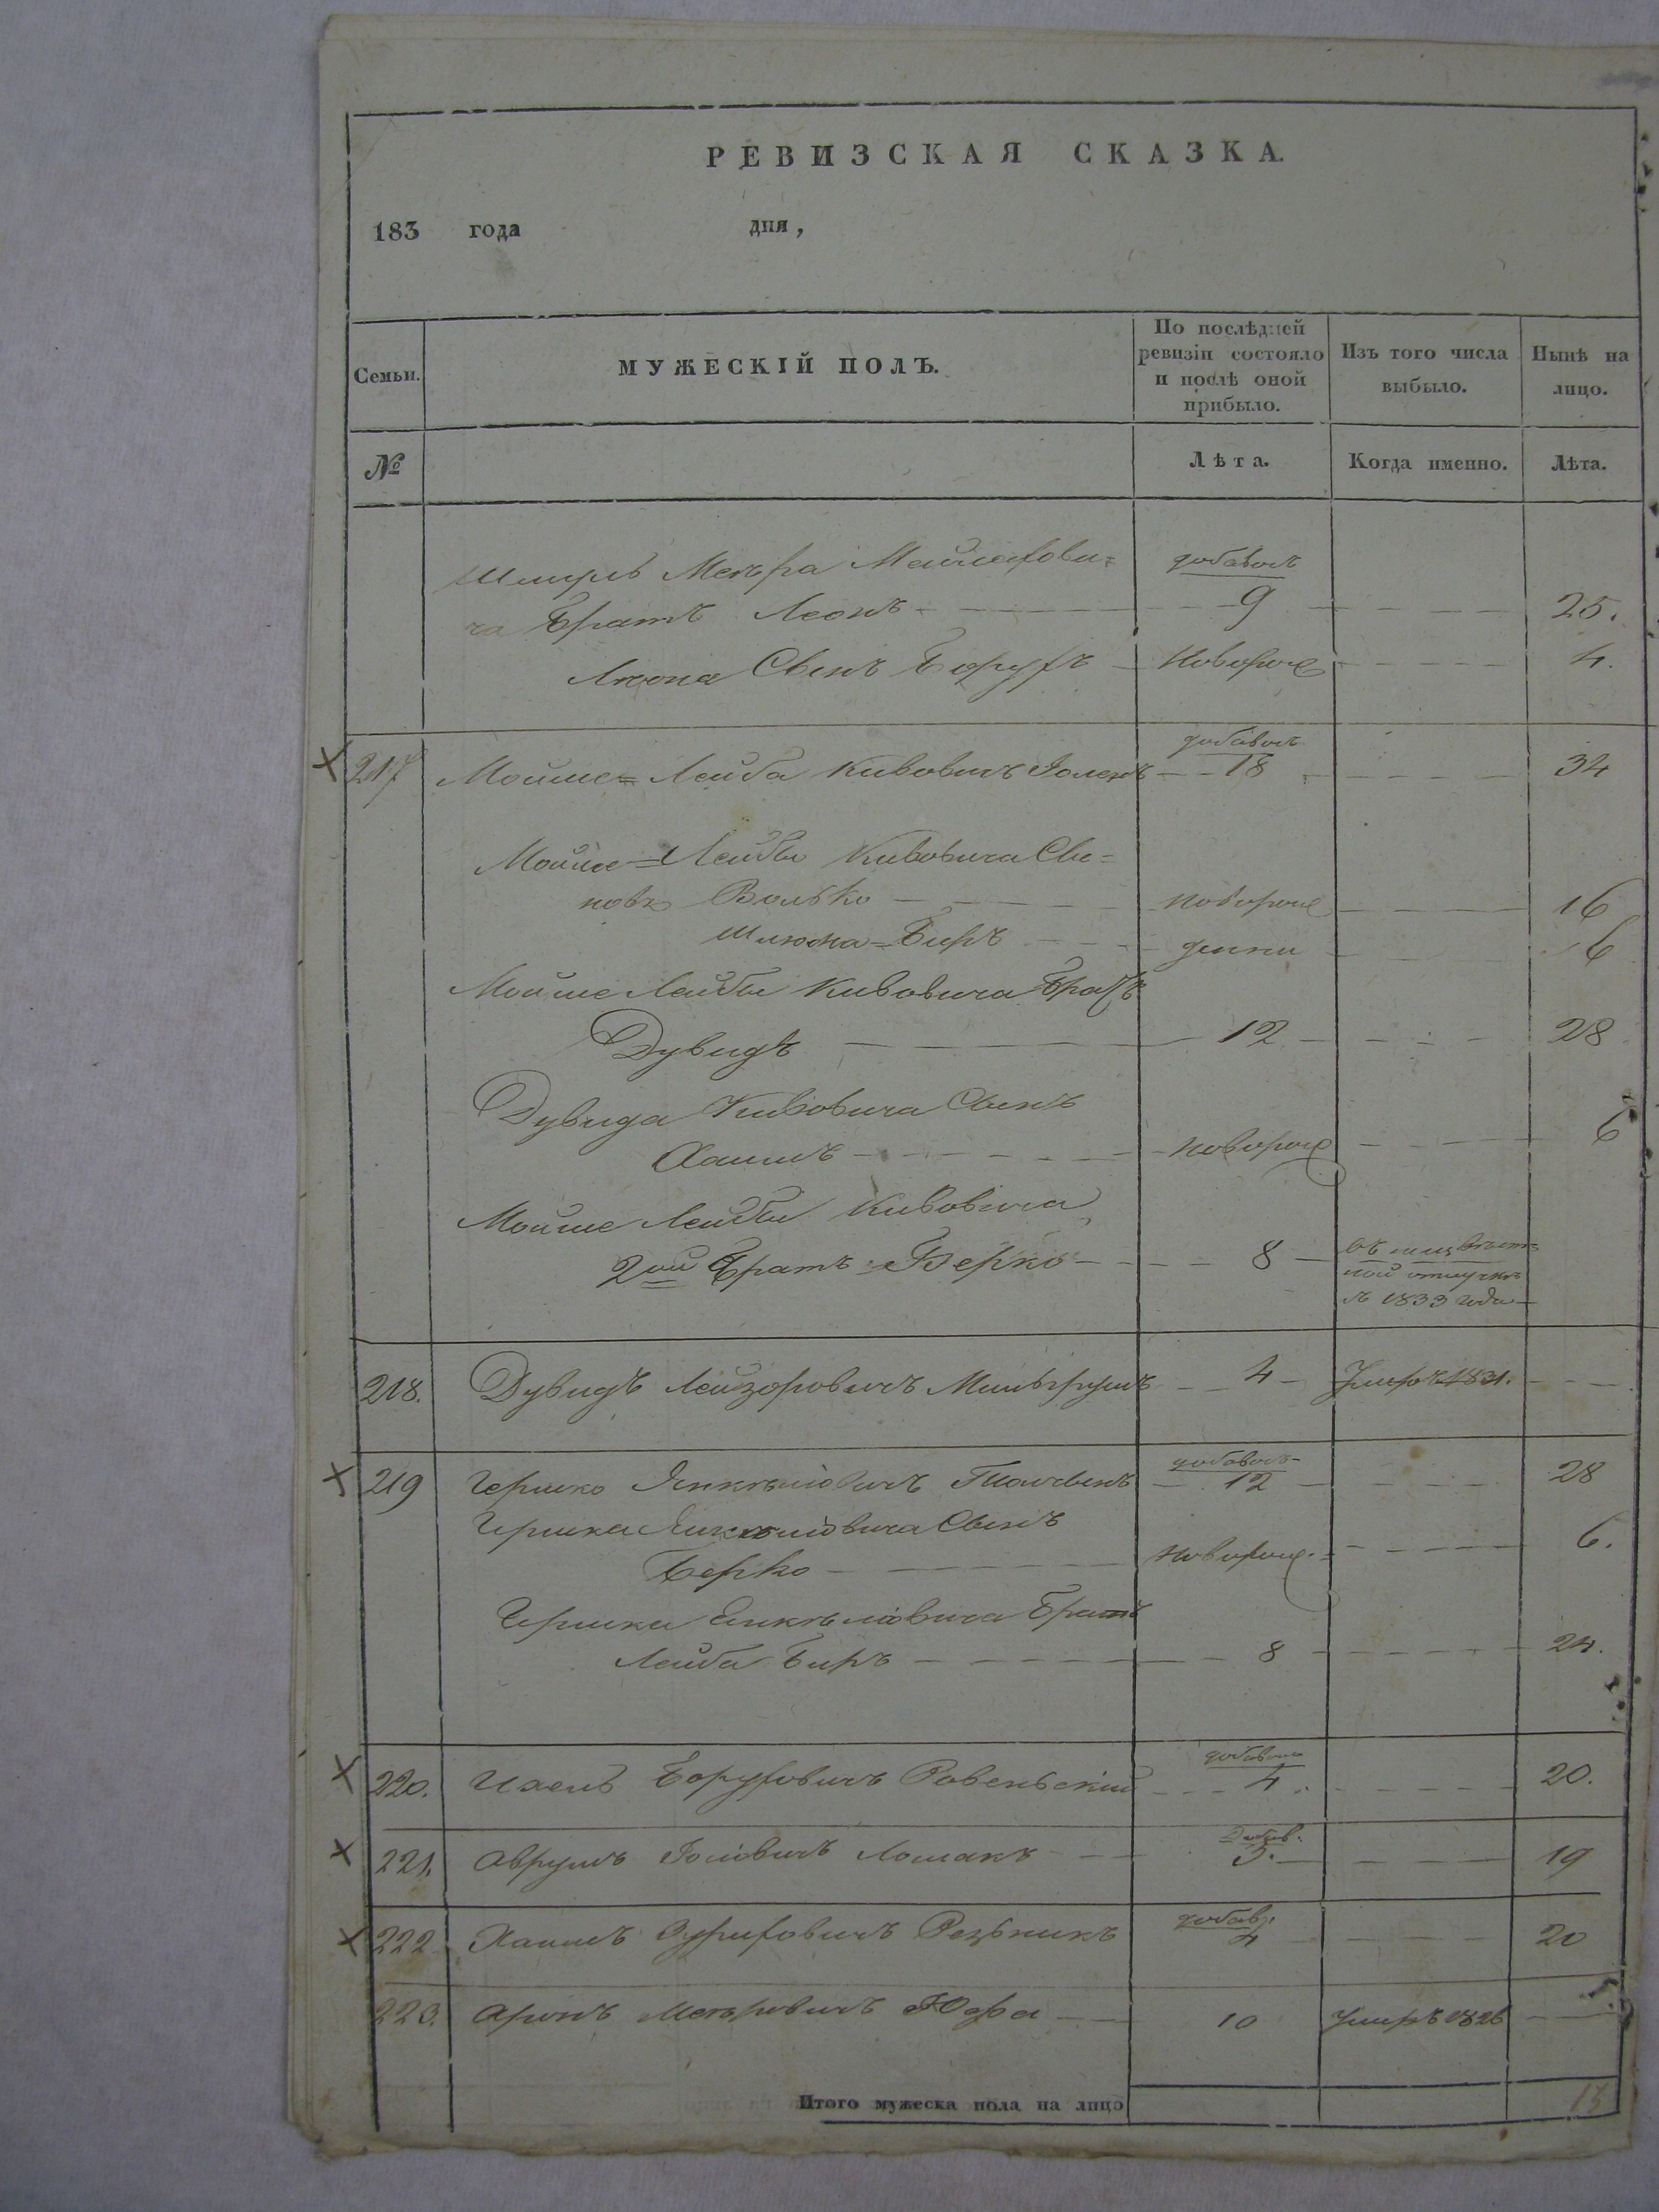 РЕВИЗСКАЯ СКАЗКА.
183 года дня,
Семьи. МУЖЕСКІЙ ПОЛЪ. По послѣдней ревизіи состояло и послѣ оной прибыло. Изъ того числа выбыло. Нынѣ на лицо.
№ Лѣта. Когда именно. Лѣта.
добавоч
Шмуль Меера
ча братъ Леонъ 9 25.
Леона Сынъ Борухъ новорож 4.
добавоч
217 Мойше=Лейба Кивовичъ 18 34
Мойше=Лейбы Кивовича Сы=
новя Волько новорож 16
Шлиома=Биръ 6
Мойше Лейбы Кивовича Братъ
Дувидъ 12 28
Дувида Кивовича Сынъ
Хаимъ новорож 6
Мойше Лейбы Кивовича
2ой братъ Берко 8
ной отлучкѣ
съ 1833 года
218. Дувидъ Лейзоровичъ Мильгрумъ 4 Умеръ 1831.
добавоч
219 Гершко Янкѣліовичъ 12 28
Гершка Янкѣліовича Сынъ
Берко новорож. 6.
Гершка Янкѣліовича братъ
Лейба Биръ 8 24.
добавоч
220. Ихель Боруховичъ Ровеньскій 4. 20.
Добав.
221. Аврумъ Іоліовичъ Лошакъ 3. 19
добав.
222 Хаимъ Зурифовичъ Резьникъ 4 20
223. Аронъ Мееровичъ Юфа 10 Умеръ 1826
Итого мужеска пола на лицо 13